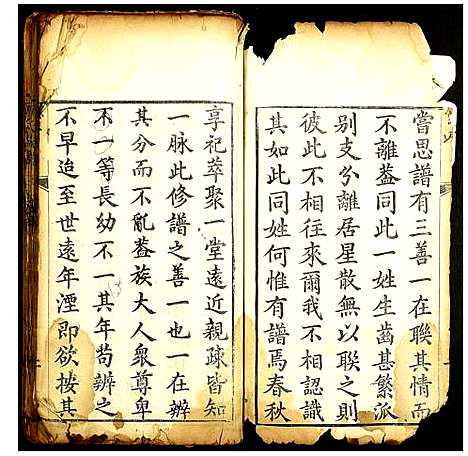 嘗思譜有三善一在聯其情而
不離蓋同此一姓生齒甚繁派
别支分離居星散無以聯之則
彼此不相往來爾我不相認識
其如此同姓何惟有譜焉春秋
享祀萃聚一堂遠近親疎皆知
一脉此修譜之善一也一在辨
其分而不亂蓋族大人衆尊卑
不一等長幼不一其年苟辨之
不早迨至世遠年湮即欲按其